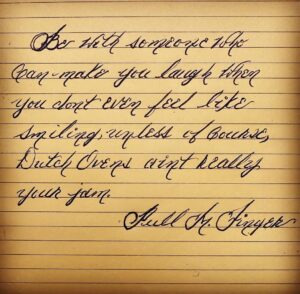 Be with someone who
can make you laugh when
you dont even feel like
smiling, unless of course,
Dutch Ovens aint really
your jam.
Pull M. Finger